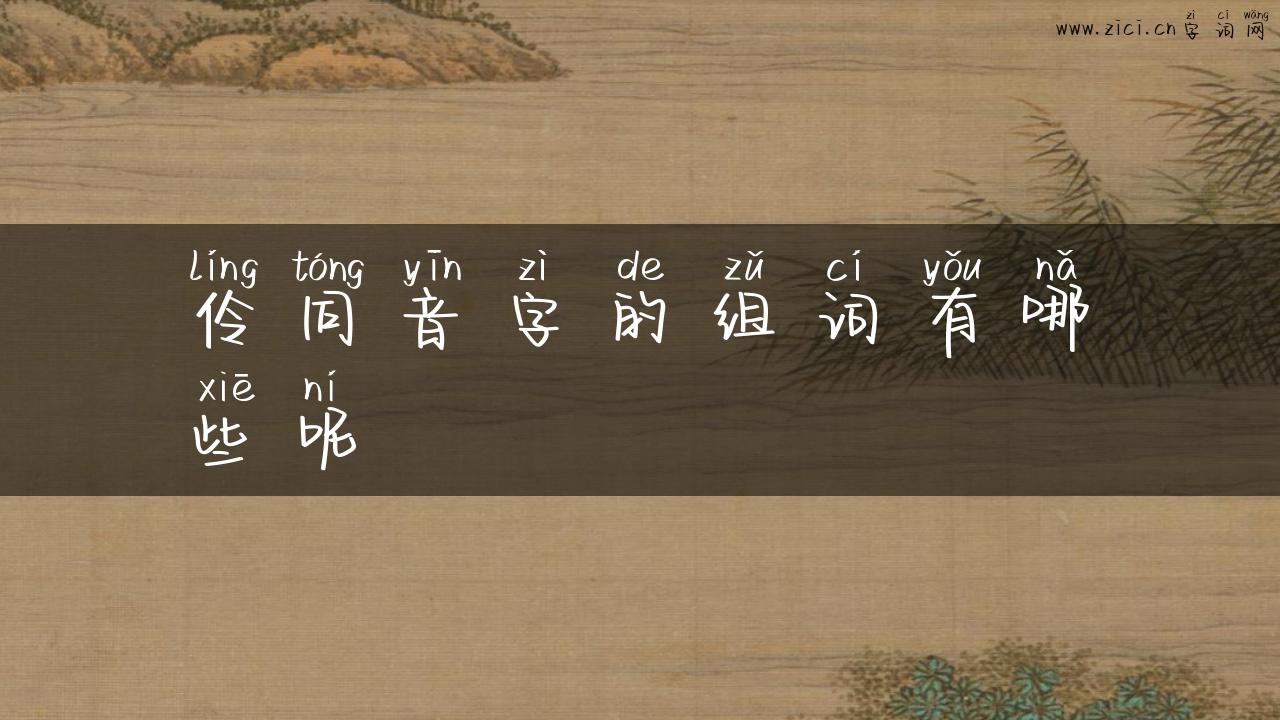 zì cí wǎng
www.zici.cn 字词网
líng tóng yīn zì de zǔ cí yǒu nǎ
伶同音字的组词有哪
xiē ní
些呢